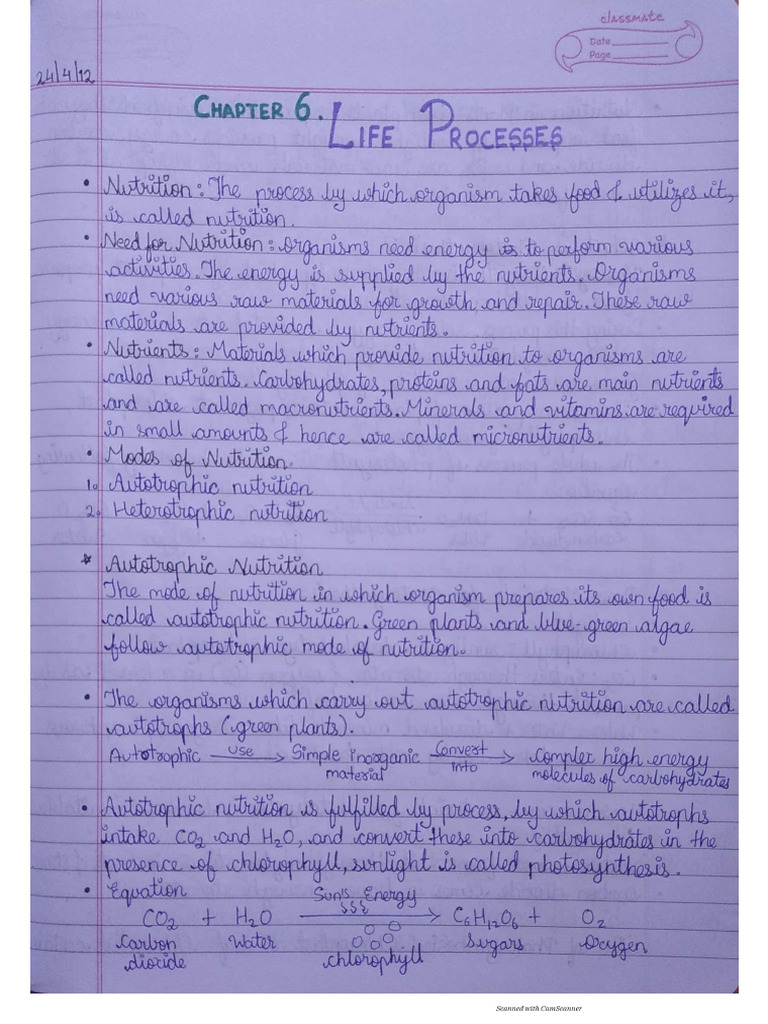 classmate
Date
Page
24/4/12
CHAPTER 6. LIFE PROCESSES
• Nutrition: The process by which organism takes food & utilizes it,
is called nutrition.
• Need for Nutrition: Organisms need energy is to perform various
activities. The energy is supplied by the nutrients. Organisms
need various raw materials for growth and repair. These raw
materials are provided by nutrients.
• Nutrients: Materials which provide nutrition to organisms are
called nutrients. Carbohydrates, proteins and fats are main nutrients
and are called macronutrients. Minerals and vitamins are required
in small amounts & hence are called micronutrients.
• Modes of Nutrition.
1. Autotrophic nutrition
2. Heterotrophic nutrition
* Autotrophic Nutrition
The mode of nutrition in which organism prepares its own food is
called autotrophic nutrition. Green plants and blue-green algae
follow autotrophic mode of nutrition.
• The organisms which carry out autotrophic nutrition are called
autotrophs (green plants).
Autotrophic use → Simple inorganic Convert → complex high energy
material into molecules of carbohydrates
• Autotrophic nutrition is fulfilled by process, by which autotrophs
intake CO2 and H2O, and convert these into carbohydrates in the
presence of chlorophyll, sunlight is called photosynthesis.
• Equation Sun's Energy
CO2 + H2O → C6H12O6 + O2
Carbon Water Sugars Oxygen
dioxide chlorophyll
Scanned with CamScanner